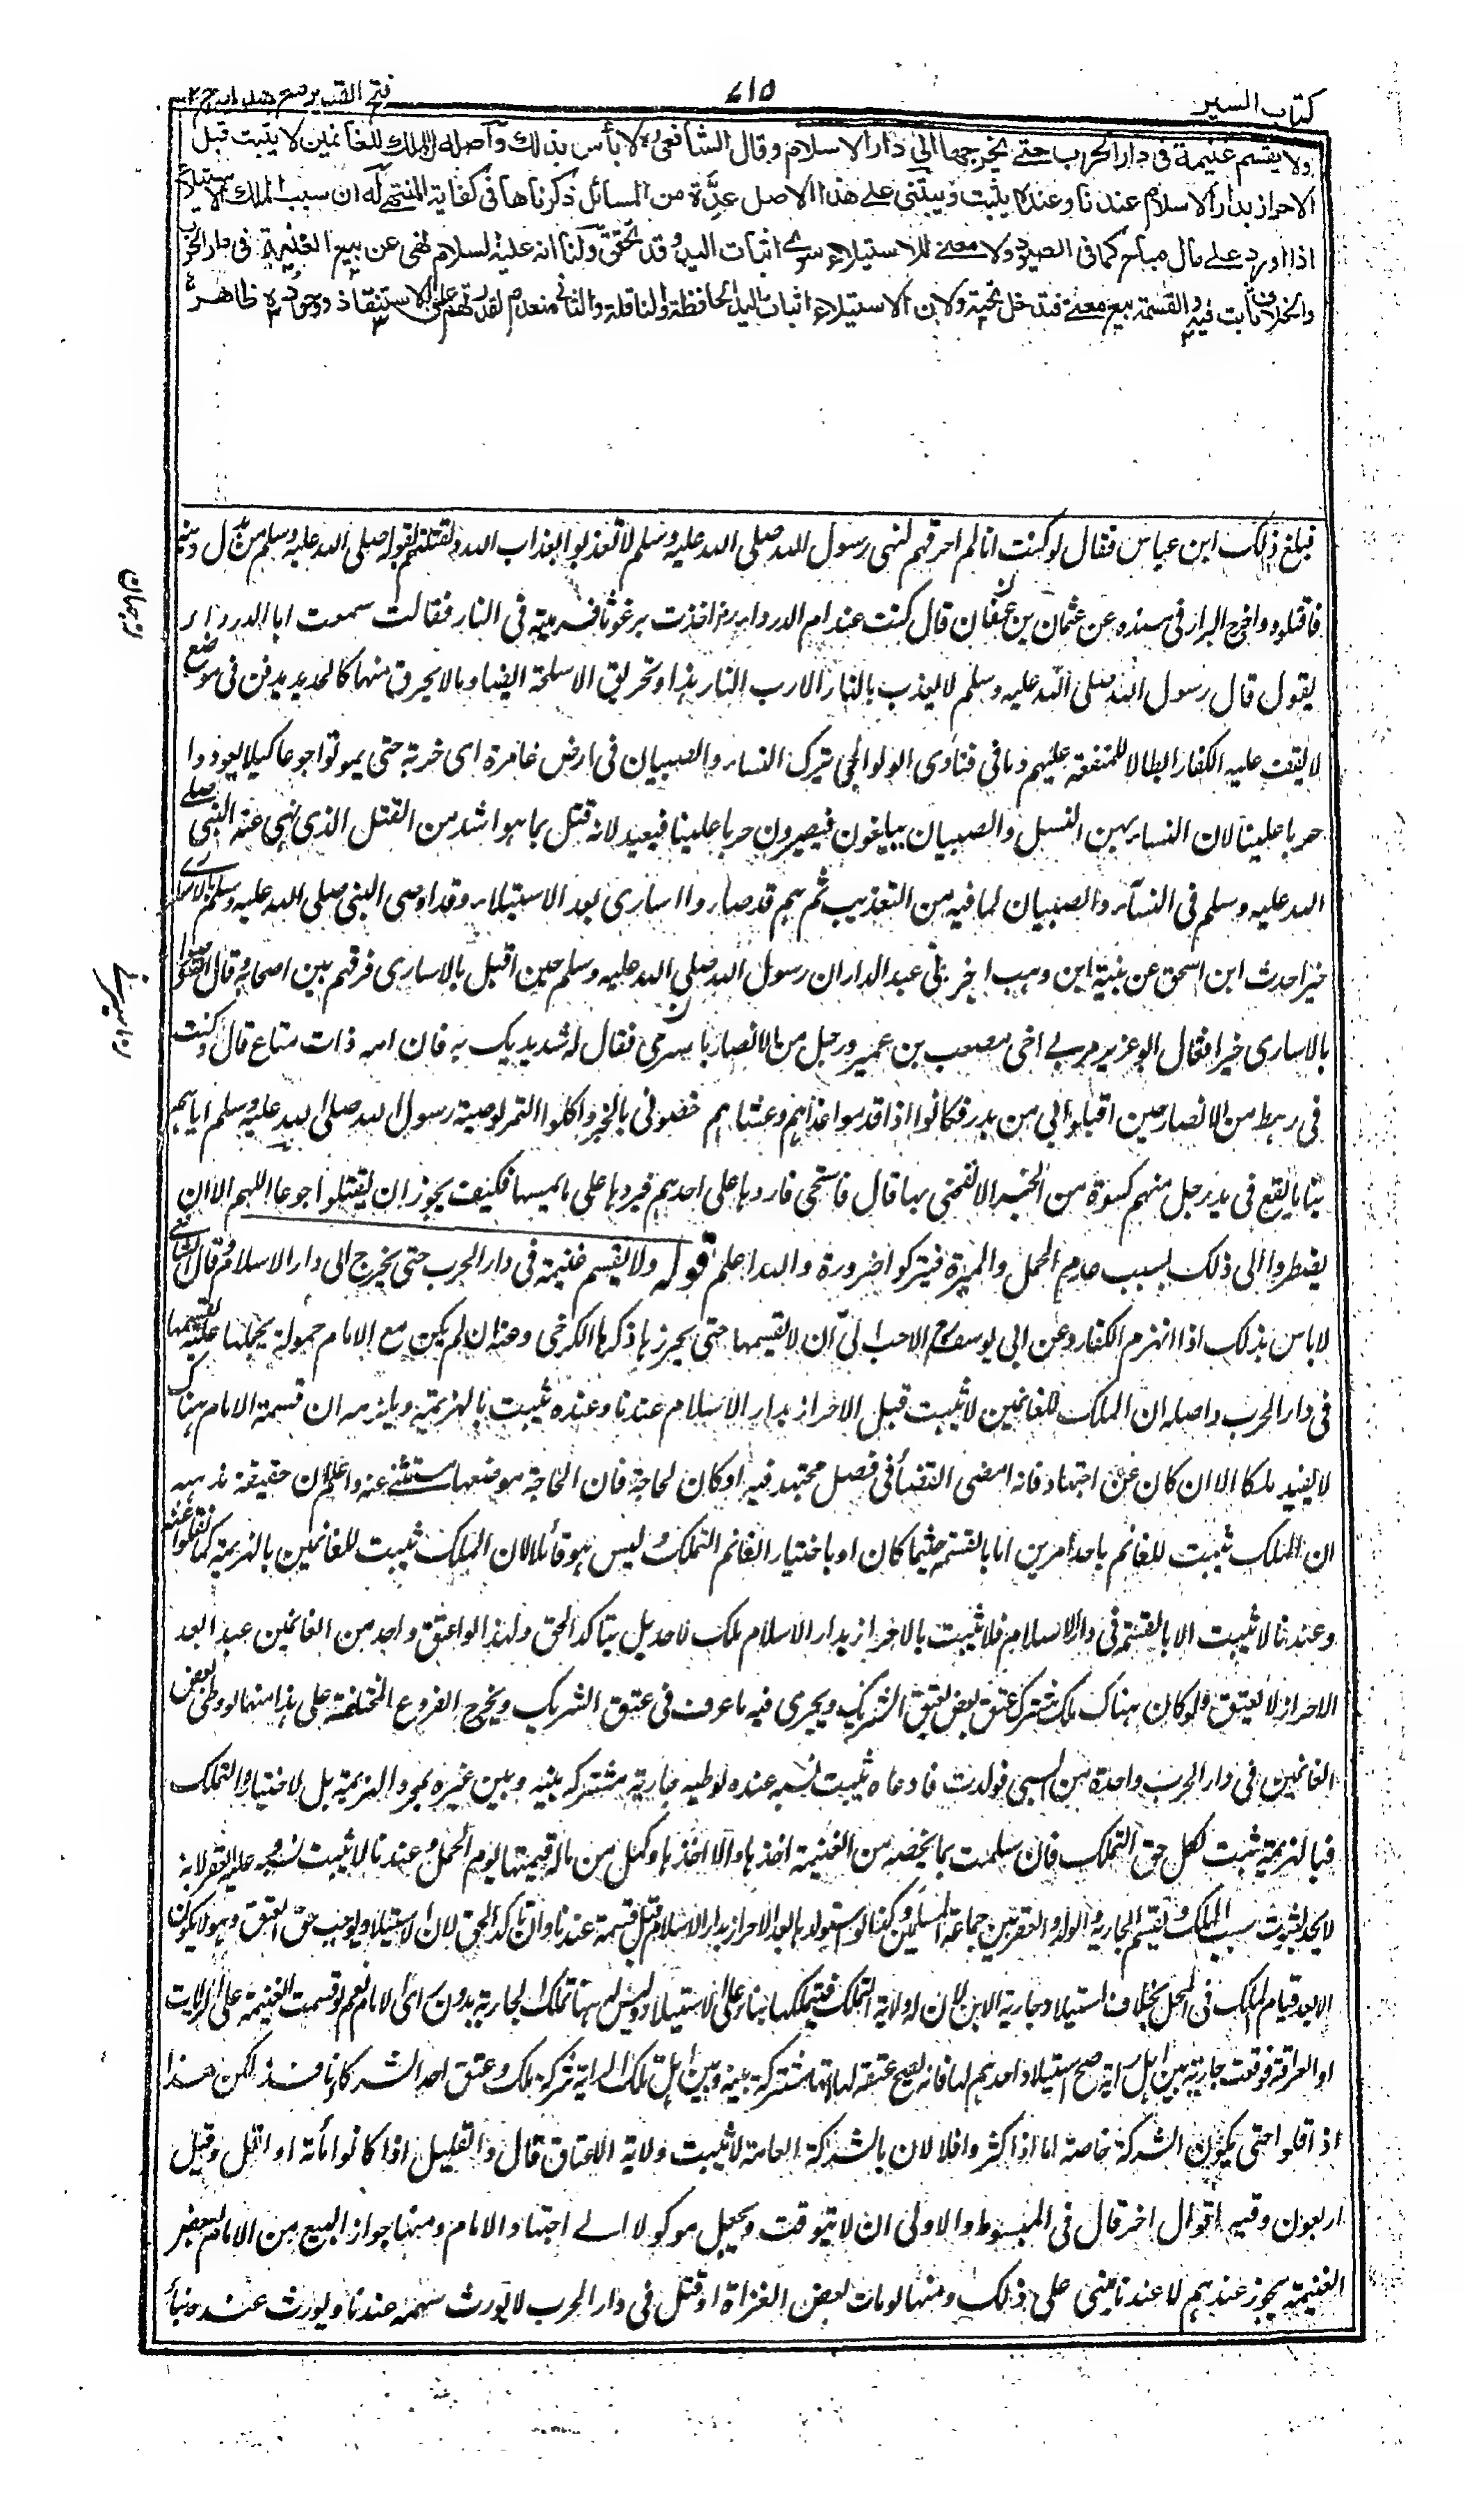 كتاب السير
٧١٥
فتح القدير مع هدايه ج ٢
ولا يقسم غنيمة فى دار الحرب حتے يخرجها الى دار الاسلام وقال الشافعىؒ لا بأس بذلك وآصله ان الملك للغانمين لا يثبت قبل
الاحراز بدار الاسلام عندنا وعندہ يثبت ويبتنى على هذا الاصل عدّة من المسائل ذكرناها فى كفاية المنتهےٰ له ان سبب الملك الاستيلاء
اذا ورد علے مال مباح كما فى الصيود ولا معنے للاستيلاء سوے اثبات اليد وقد تحقق ولنا انه عليه السلام نهى عن بيع الغنيمة فى دار الحرب
والخلاف ثابت فيه والقسمة بيع معنے فتدخل تحته ولان الاستيلاء اثبات اليد الحافظة والناقلة والثانى منعدم لقدرتهم على الاستنقاذ ووجوده ظاهرًا
فبلغ ذلك ابن عباس فقال لو كنت انا لم احرقهم لنهى رسول الله صلى الله عليه وسلم لا تعذبوا بعذاب الله ولقتلتهم لقوله صلى الله عليه وسلم من بدّل دينه
فاقتلوه واخرج البزار فى مسنده عن عثمان بن عفان قال كنت عند ام الدرداء رض اخذت برغوثا فرميته فى النار فقالت سمعت ابا الدرداء
يقول قال رسول الله صلى الله عليه وسلم لا يعذب بالنار الا رب النار هذا وتحريق الاسلحة ايضا وما لا يحرق منها كالحديد يدفن فى موضع
لا يقف عليه الكفار ابطالا للمنفعة عليهم وما فى فتاوى الولوالجى تترك النساء والصبيان فى ارض غامرة اى خربة حتى يموتوا جوعا كيلا يعودوا
حربا علينا لان النساء بهن النسل والصبيان يبلغون فيصيرون حربا علينا فبعيد لانه قتل بما هو اشد من القتل الذى نهى عنه النبى صلے
الله عليه وسلم فى النساء والصبيان لما فيه من التعذيب ثم هم قد صاروا اسارى بعد الاستيلاء وقد اوصى النبى صلى الله عليه وسلم بالاسرى
خيرا حدث ابن اسحق عن نبيه ابن وهب اخى بنى عبد الدار ان رسول الله صلى الله عليه وسلم حين اقبل بالاسارى فرقهم بين اصحابه وقال استوصوا
بالاسارى خيرا فقال ابو عزيز مر بى اخى مصعب بن عمير ورجل من الانصار ياسرنى فقال له شد يديك به فان امه ذات متاع قال وكنت
فى رهط من الانصار حين اقبلوا بى من بدر فكانوا اذا قدموا غداهم وعشاهم خصونى بالخبز واكلوا التمر لوصية رسول الله صلى الله عليه وسلم اياهم
بنا ما يقع فى يد رجل منهم كسرة من الخبز الا نفحنى بها قال فاستحى فاردها على احدهم فيردها على ما يمسها فكيف يجوز ان يقتلوا جوعا اللهم الا ان
يضطروا الى ذلك بسبب عدم الحمل والميرة فيتركوا ضرورة والله اعلم قوله ولا يقسم غنيمة فى دار الحرب حتى يخرج الى دار الاسلام وقال الشافعى
لا باس بذلك اذا انهزم الكفار وعن ابى يوسف رح الاحب الىّ ان لا يقسمها حتى يحرزها ذكرها الكرخى وعنه ان لم يكن مع الامام حمولة يحملها عليه يقسمها
فى دار الحرب واصله ان الملك للغانمين لا يثبت قبل الاحراز بدار الاسلام عندنا وعنده يثبت بالهزيمة ويلزمه ان قسمة الامام هناك
لا يفيد ملكا الا ان كان عن اجتهاد فانه امضى القضاء فى فصل مجتهد فيه او كان لحاجة فان الحاجة موضعها مستثنے عنه واعلم ان حقيقة مذهبه
ان الملك يثبت للغانم باحد امرين اما بالقسمة حيثما كان او باختيار الغانم التملك وليس هو قائلا لان الملك يثبت للغانمين بالهزيمة كما نقلوا عنه
وعندنا لا يثبت الا بالقسمة فى دار الاسلام فلا يثبت بالاحراز بدار الاسلام ملك لاحد بل يتاكد الحق ولهذا لو اعتق واحد من الغانمين عبدا بعد
الاحراز لا يعتق ولو كان هناك ملك مشترك عتق بعض بعتق الشريك ويجرى فيه ما عرف فى عتق الشريك ويخرج الفروع المختلفة على هذا منها لو وطى بعض
الغانمين فى دار الحرب واحدة من السبى فولدت فادعاه يثبت نسبه عنده لوطيه جارية مشتركة بينه وبين غيره لمجرد الهزيمة بل لاختيار التملك
فبالهزيمة يثبت لكل حق التملك فان سلمت بما يخصه من الغنيمة اخذها والا اخذها وكمل من ماله قيمتها يوم الحمل وعندنا لا يثبت نسبه وعليه العقر لانه
لا يحد لثبوت سبب الملك ويقسم الجارية والولد والعقر بين جماعة المسلمين وكذا لو استولدها بعد الاحراز بدار الاسلام قبل قسمة عندنا وان تاكد الحق لان الاستيلاد يوجب حق العتق وهو لا يكون
الا بعد قيام الملك فى المحل بخلاف استيلاد جارية الابن لان له ولاية التملك فيتملكها بناء على الاستيلاد وليس له هنا تملك الجارية بدون راى الامام نعم لو قسمت الغنيمة على الرايات
او العرافة فوقعت جارية بين اهل راية صح استيلاد احدهم لها فانه يصح عتقه لها لانها مشتركة بينه وبين اهل تلك الراية شركة ملك وعتق احد الشركاء نافذ لكن هذا
اذا قلوا حتى يكون الشركة خاصة اما اذا كثروا فلا لان بالشركة العامة لا يثبت ولاية الاعتاق قال والقليل اذا كانوا مأة او اقل وقيل
اربعون وقيه اقوال اخر قال فى المبسوط والاولى ان لا يتوقت ويجعل موكولا الے اجتهاد الامام ومنها جواز البيع من الامام لبعض
الغنيمة يجوز عندهم لا عندنا يبنى على ذلك ومنها لو مات بعض الغزاة او قتل فى دار الحرب لا يورث سهمه عندنا ويورث عنده بناء